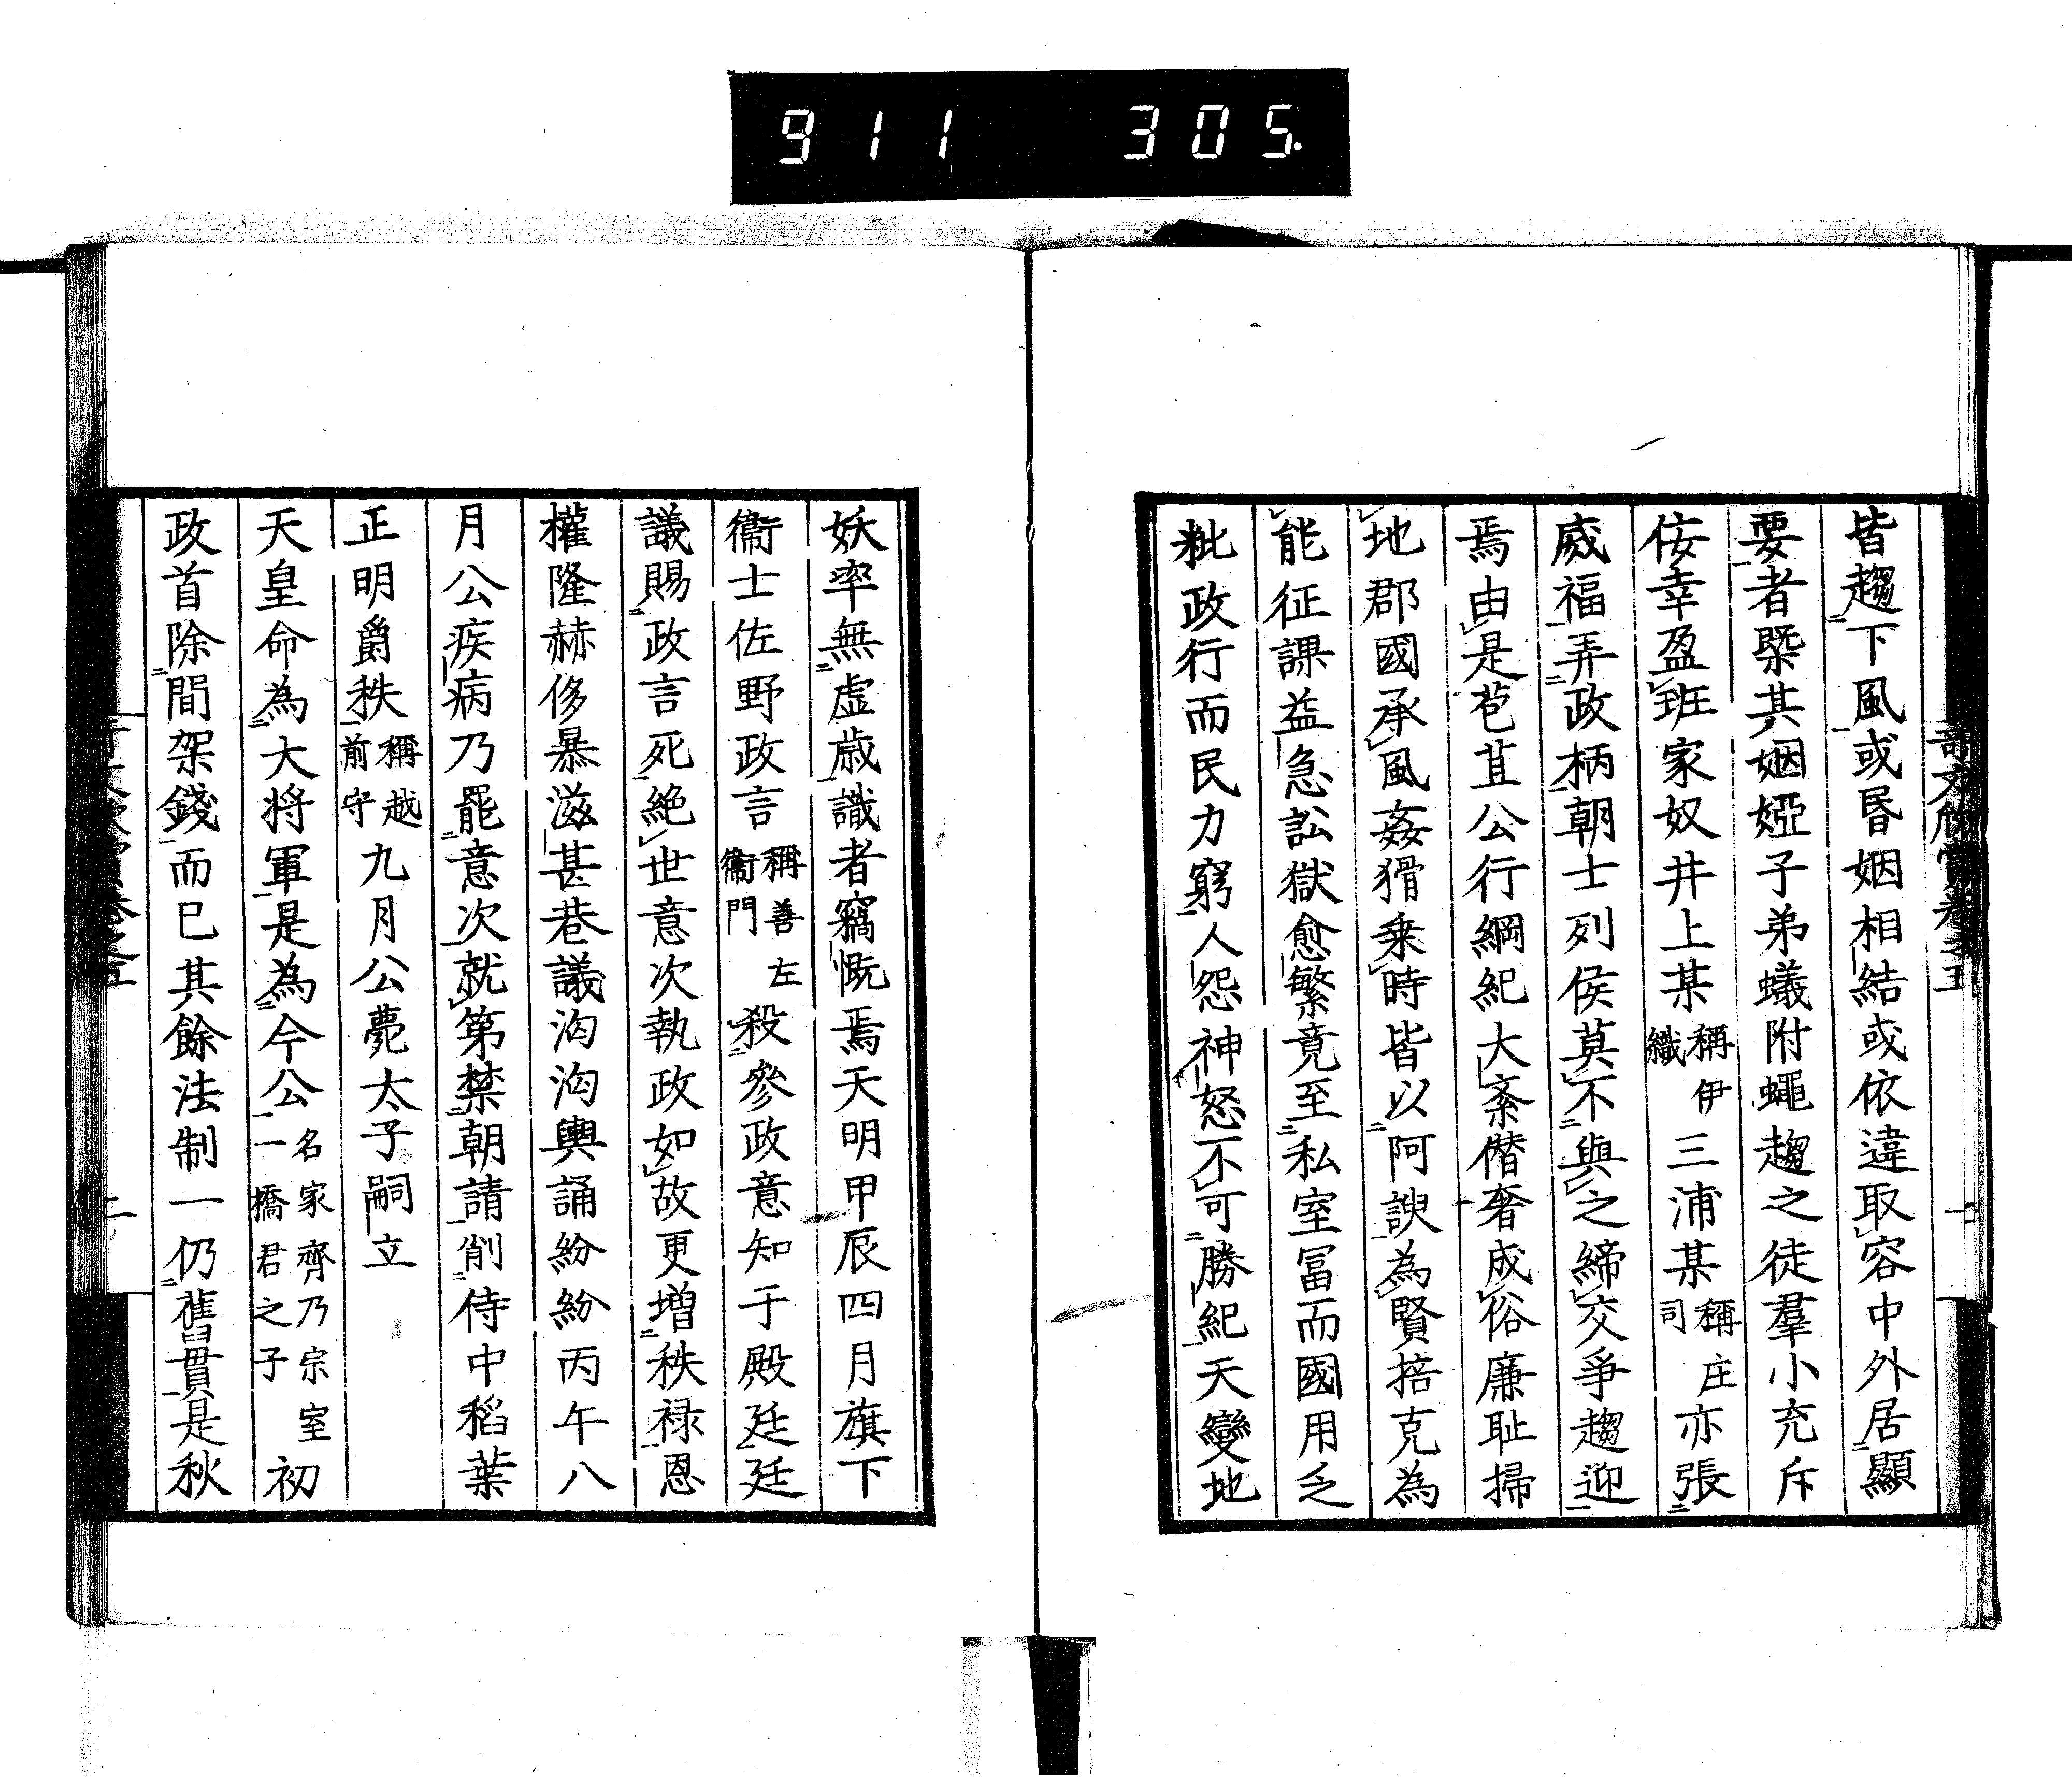 911 305.
奇文欣賞卷之五 一
皆趨下風或昏姻相結或依違取容中外居顯
要者槩其姻婭子弟蟻附蠅趨之徒羣小充斥
佞幸盈班家奴井上某稱伊織三浦某稱庄司亦張
威福弄政柄朝士列侯莫不與之締交爭趨迎
焉由是苞苴公行綱紀大紊僭奢成俗廉耻掃
地郡國承風姦猾乗時皆以阿諛為賢掊克為
能征課益急訟獄愈繁竟至私室冨而國用乏
粃政行而民力窮人怨神怒不可勝紀天變地
妖率無虚歳識者竊慨焉天明甲辰四月旗下
衞士佐野政言稱善左衞門殺參政意知于殿廷廷
議賜政言死絶世意次執政如故更増秩禄恩
權隆赫侈暴滋甚巷議洶洶輿誦紛紛丙午八
月公疾病乃罷意次就第禁朝請削侍中稻葉
正明爵秩稱越前守九月公薨太子嗣立
天皇命為大将軍是為今公名家齊乃宗室一橋君之子初
政首除間架錢而已其餘法制一仍舊貫是秋